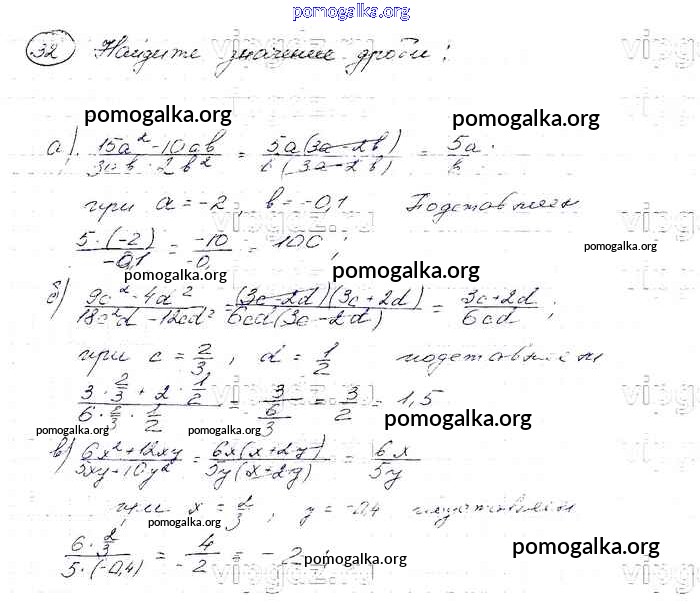 pomogalka.org
32 Найдите значение дроби:
pomogalka.org pomogalka.org
а) (15a² - 10ab)/(3ab - 2b²) = 5a(3a - 2b)/b(3a - 2b) = 5a/b;
при a = -2, b = -0,1 Подставляем
pomogalka.org
5·(-2)/-0,1 = -10/-0, = 100;
pomogalka.org pomogalka.org
б) (9c² - 4d²)/(18c²d - 12cd²) = (3c - 2d)(3c + 2d)/6cd(3c - 2d) = (3c + 2d)/6cd;
при c = 2/3, d = 1/2 подставляем
(3·2/3 + 2·1/2)/(6·2/3·1/2) = 3/(6/3) = 3/2 = 1,5
pomogalka.org pomogalka.org pomogalka.org
в) (6x² + 12xy)/(5xy + 10y²) = 6x(x + 2y)/5y(x + 2y) = 6x/5y
при x = 2/3, y = -0,4 подставляем
pomogalka.org
(6·2/3)/(5·(-0,4)) = 4/-2 = -2
pomogalka.org pomogalka.org